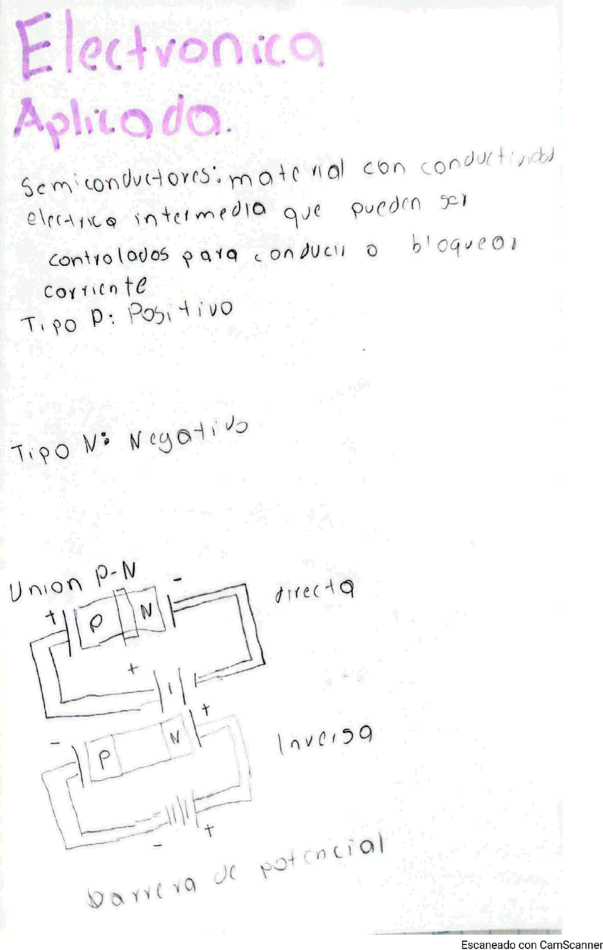 Electronica
Aplicada.
Semiconductores: material con conductividad
electrica intermedia que pueden ser
controlados para conducir o bloquear
corriente
Tipo P: Positivo
Tipo N: Negativo
Union P-N
directa
+ P N -
+
Inversa
- P N +
- +
barrera de potencial
Escaneado con CamScanner